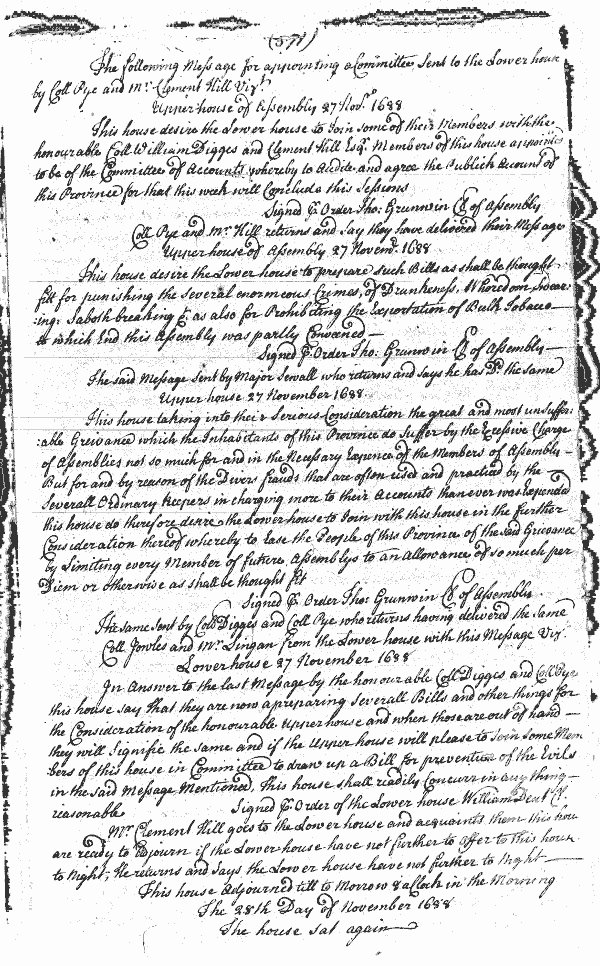 (571)
The following Message for appointing a Committee Sent to the Lower house
by Coll Pye and Mr. Clement Hill Vizt.
Upper house of Assembly 27 Novr. 1688
This house desire the Lower house to Join some of their Members with the
honourable Coll William Digges and Clement Hill Esqr. Members of this house appointed
to be of the Committee of Accounts whereby to Audite and agree the Publick Accounts of
this Province for that this week will Conclude this Sessions
Signed P. Order Tho: Grunwin Cl of Assembly
Coll Pye and Mr. Hill returns and Say they have delivered their Message
Upper house of Assembly 27 Novem.r 1688
This house desire the Lower house to prepare such Bills as shall be thought
fitt for punishing the Several enormeous Crimes, of Drunkeness, Whoredom, Swear
:ing: Saboth breaking &c. as also for Prohibiting the Exportation of Bulk Tobacco
to which End this Assembly was partly Convened
Signed P. Order Tho: Grunwin Cl of Assembly
The said Message Sent by Major Sewall who returns and Says he has Dd. the same
Upper house 27 November 1688
This house taking into their Serious Consideration the great and most unsuffer:
:able Greivance which the Inhabitants of this Province do Suffer by the Excessive Charge
of Assemblies not so much for and in the Necessary Expence of the Members of Assembly
But for and by reason of the Divers frauds that are often used and practiced by the
Severall Ordinary keepers in charging more to their Accounts than ever was Expended
this house do therefore desire the Lower house to Join with this house in the further
Consideration thereof whereby to Ease the People of this Province of the said Grievance
by Limiting every Member of future Assemblys to an allowance of so much per
Diem or otherwise as shall be thought fit
Signed P. Order Tho: Grunwin Cl of Assembly
The same sent by Coll Digges and Coll Pye who returns having delivered the same
Coll Jowles and Mr. Lingan from the Lower house with this Message Vizt.
Lower house 27 November 1688
In Answer to the last Message by the honourable Coll Digges and Coll Pye
this house say that they are now a preparing Severall Bills and other things for
the Consideration of the honourable Upper house and when those are out of hand
they will Signifie the same and if the Upper house will please to Join some Mem
bers of this house in Committee to draw up a Bill for prevention of the Evils
in the said Message Mentioned, This house shall readily Concurr in any thing
reasonable Signed P. Order of the Lower house William Dent Cl.
Mr. Clement Hill goes to the Lower house and acquaints them this house
are ready to Adjourn if the Lower house have not further to offer to this house
to Night, He returns and Says the Lower house have not further to Night
This house Adjourned till to Morrow 8 aClock in the Morning
The 28th Day of November 1688
The house sat again